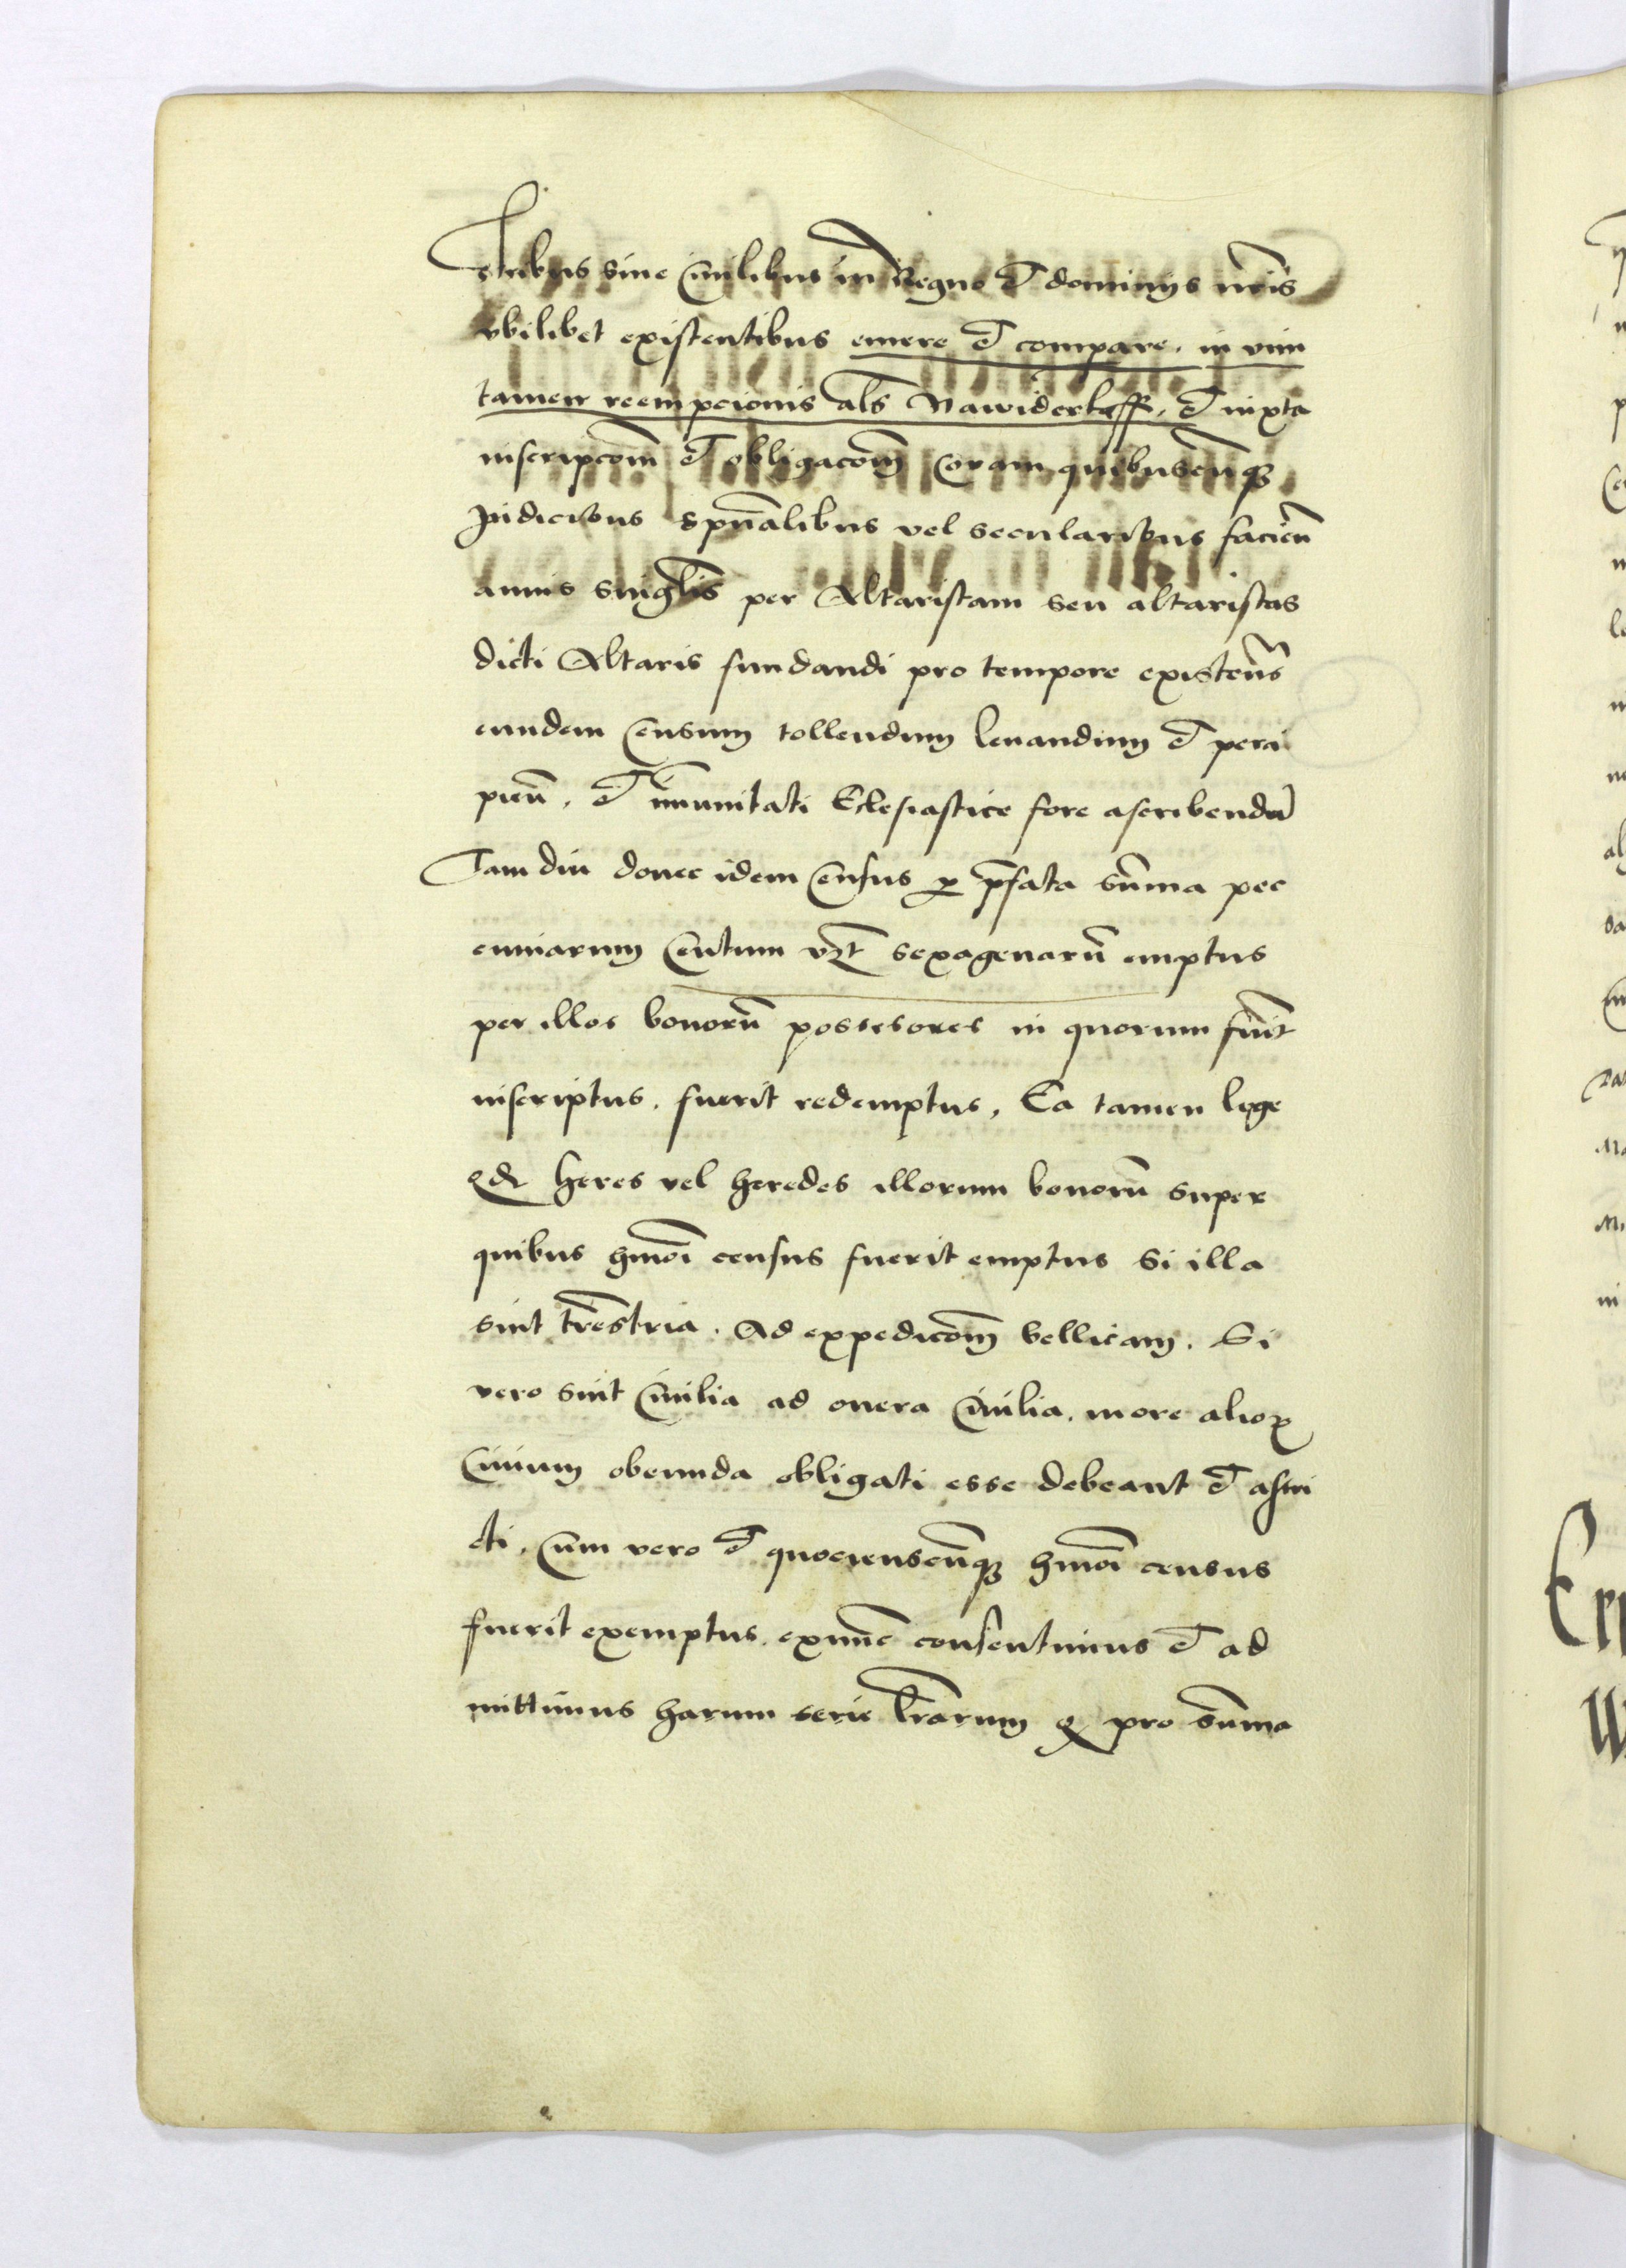 stribus siue Ciuilibus in Regno et dominijs nr̄is
vbilibet existentibus emere et compare. in vim
tamen reempcionis al̄s Nawiderkaff, et iuxta
inscripcōm et obligacōm Coram quibuscūqꝫ
Judicibus Spūalibus vel secularibus faciēn
annis singl̄is per Altaristam seu altaristas
dicti Altaris fundandi pro tempore existen̄s
eundem Censum tollendum leuandum et perci
pien̄, et īmunitati Eclesiastice fore ascribendū
Tam diu donec idem Census ꝑ p̄fata sūma pec
cuniarum Centum vꝫt sexagenarū emptus
per illos bonorū possesores in quorum fūit
inscriptus, fuerit redemptus, Ea tamen lege
qd heres vel heredes illorum bonorū super
quibus hmōi census fuerit emptus Si illa
sint tr̄estria. Ad expedicōm bellicam. Si
vero sint Ciuilia ad onera Ciuilia. more alioꝝ
Ciuium obeunda obligati esse debeant et astri
cti, Cum vero et quocienscūqꝫ hmōi census
fuerit exemptus, extūc consentimus et ad
mittimus harum serie lr̄arum qꝫ pro sūma